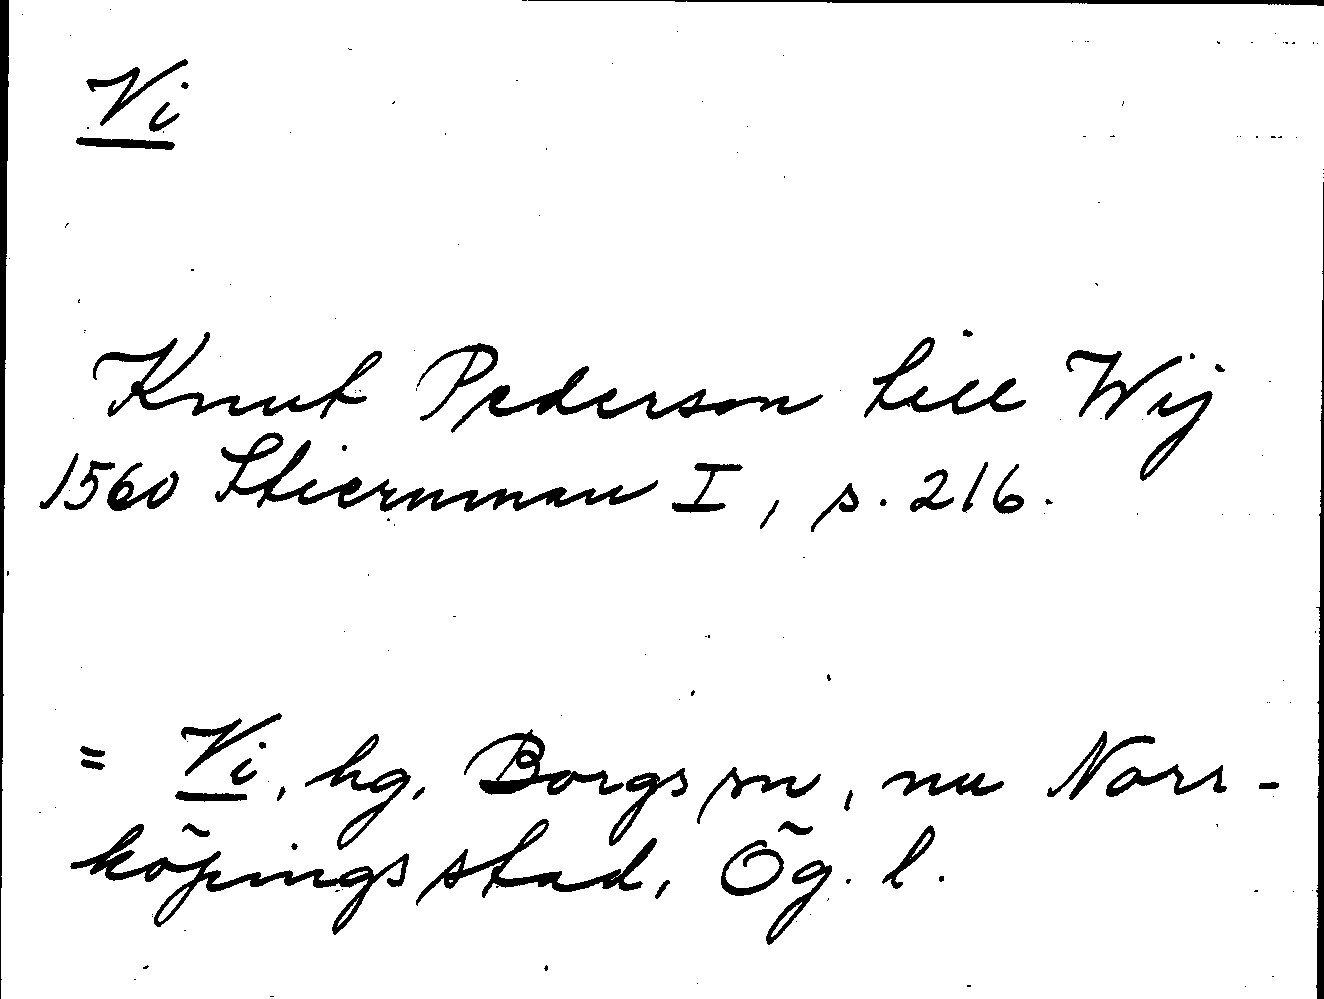 Vi
Knut Pederson till Wij
1560 Stiernman I, s. 216.
= Vi, hg, Borgs sn, nu Norr-
köpings stad, Ög. l.